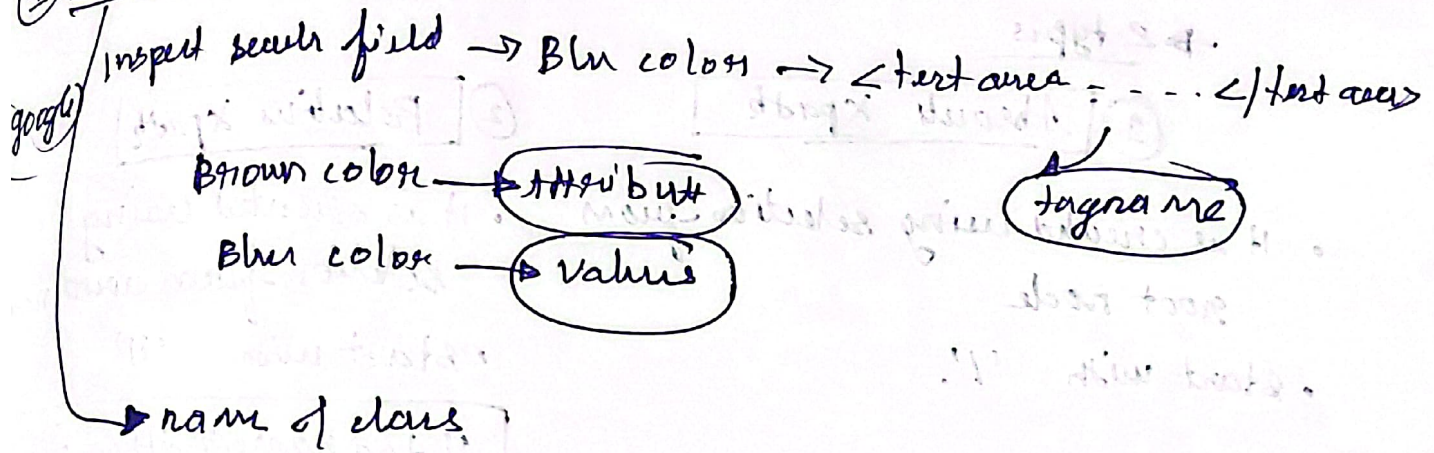 Inspect search field → Blue color → <textarea - - - - .. </textarea>
google
Brown color → Attribute
tagname
Blue color → Values
name of class